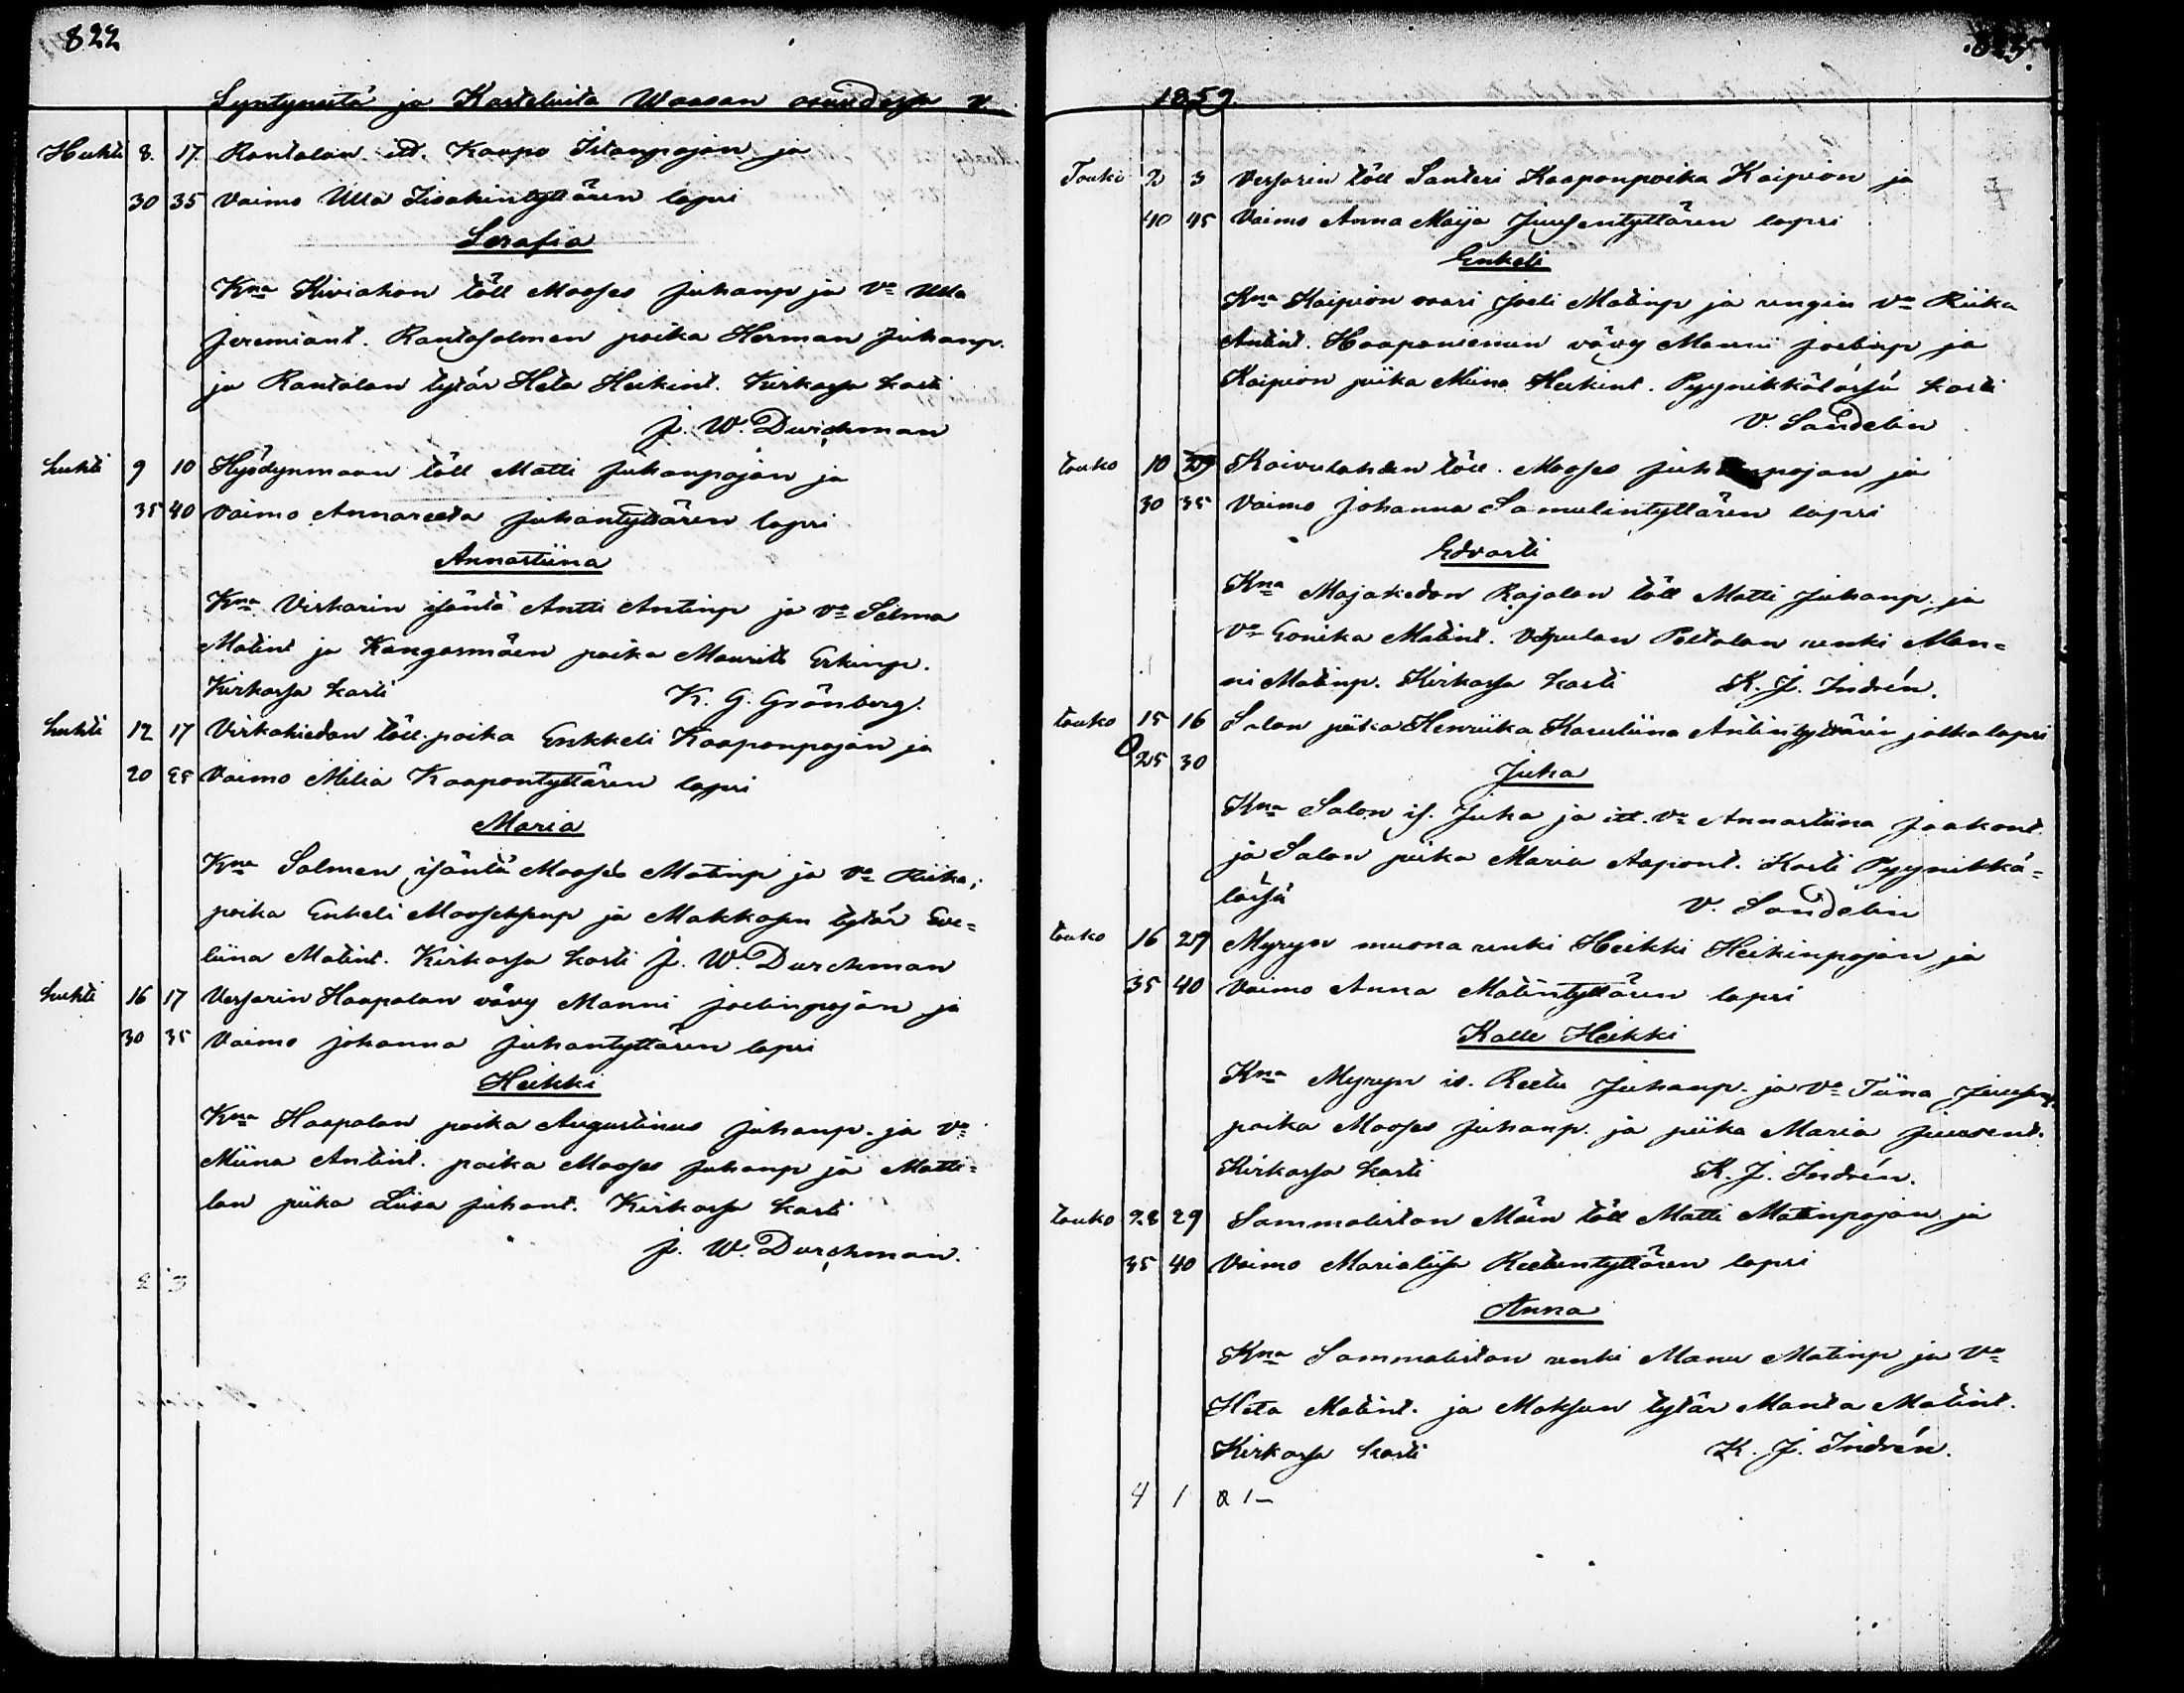 822
Syntyneitä ja Kastetuita Waasan osuudessa v.
Huhti 8. 17. Rantalan itt. Kaapo Iitanpojan ja
30 35 Vaimo Ulla Iisakintyttären lapsi
Serafia
Kna Kiviahon töll Mooses Juhanp ja Vo Ulla
Jeremiant. Rantasalmen poika Herman Juhanp.
ja Rantalan tytär Heta Heikint. Kirkossa kasti
J. W. Durchman
huhti 9 10 Hyödynmaan töll Matti Juhanpojan ja
35 40 Vaimo Annareeta Juhantyttären lapsi
Annastiina
Kna Viskarin isäntä Antti Antinp ja Vo Selma
Matint ja Kangasmäen poika Maurits Erkinp.
Kirkossa kasti K. G. Grönberg.
huhti 12 17 Virkakiedan töll. poika Enkkeli Kaaponpojan ja
20 25 Vaimo Milia Kaapontyttären lapsi
Maria
Kna Salmen isäntä Mooses Matinp ja Vo Riika;
poika Enkeli Mooseksenp ja Makkosen tytär Eve=
liina Matint. Kirkossa kasti J. W. Durchman
huhti 16 17 Vessarin Haapalan vävy Manni Joelinpojan ja
30 35 Vaimo Johanna Juhantyttären lapsi
Heikki
Kna Haapalan poika Augustinus Juhanp. ja Vo
Miina Antint. poika Mooses Juhanp ja Matti=
lan piika Liisa Juhant. Kirkossa kasti
J. W. Durchman.
2 3
1859
Touko 2 3 Vessarin töll Santeri Kaaponpoika Kaipion ja
40 45 Vaimo Anna Maija Juusentyttären lapsi
Enkeli
Kna Kaipion vaari Joeli Matinp ja rengin Vo Riika
Antint. Haapaniemen vävy Manni Joelinp ja
Kaipion piika Miina Heikint. Pyynikkälässä kasti
V. Sandelin
touko 10 29 Koivulahden töll. Mooses Juhanpojan ja
30 35 Vaimo Johanna Samulintyttären lapsi
Edvarti
Kna Majakedon Rajalan töll Matti Juhanp. ja
Vo Eonika Matint. Peltolan renki Man=
ni Matinp. Kirkossa kasti K. J. Indrén.
touko 15 16 Salon piika Henriika Karuliina Antintyttären jalkalapsi
25 30
Juha
Kna Salon is. Juha ja itt. Vo Annastiina Jaakont
ja Salon piika Maria Aapont. Kasti Pyynikkä=
lässä V. Sandelin
touko 16 29 Myryn muona renki Heikki Heikinpojan ja
35 40 Vaimo Anna Matintyttären lapsi
Kalle Heikki
Kna Myryn is. Reetu Juhanp. ja Vo Tiina
poika Mooses Juhanp. ja piika Maria Juusent.
Kirkossa kasti K. J. Indrén.
touko 28 29 Sammaliston Mäen töll Matti Matinpojan ja
35 40 Vaimo Marialiisa Reetuntyttären lapsi
Anna
Kna Sammaliston renki Manu Matinp ja Vo
Heta Matint. ja Maksun tytär Manta Matint.
Kirkossa kasti K. J. Indrén.
4 1